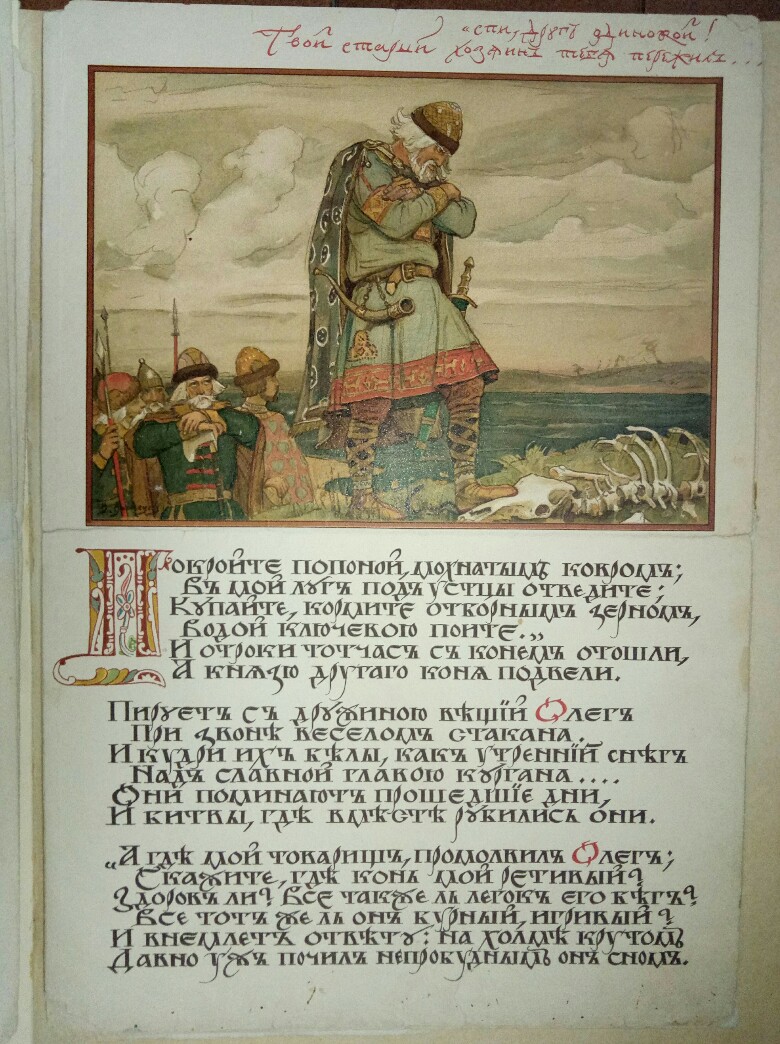 „спи, другъ одинокой!
Твой старый хозяинъ тебя пережилъ...
Покройте попоной, мохнатымъ ковромъ;
Въ мой лугъ подъ устцы отведите;
Купайте, кормите отборнымъ зерномъ,
Водой ключевою поите.„
И отроки тотчасъ съ конемъ отошли,
А князю другаго коня подвели.
Пируетъ съ дружиною вѣщій Олегъ
При звонѣ веселомъ стакана.
И кудри ихъ бѣлы, какъ утренній снѣгъ
Надъ славной главою кургана....
Они поминаютъ прошедшіе дни,
И битвы, гдѣ вмѣстѣ рубились они.
„А гдѣ мой товарищъ, промолвилъ Олегъ;
Скажите, гдѣ конь мой ретивый?
Здоровъ ли? Все также ль легокъ его бѣгъ?
Все тотъ же ль онъ бурный, игривый?
И внемлетъ отвѣту: на холмѣ крутомъ
Давно ужъ почилъ непробуднымъ онъ сномъ.